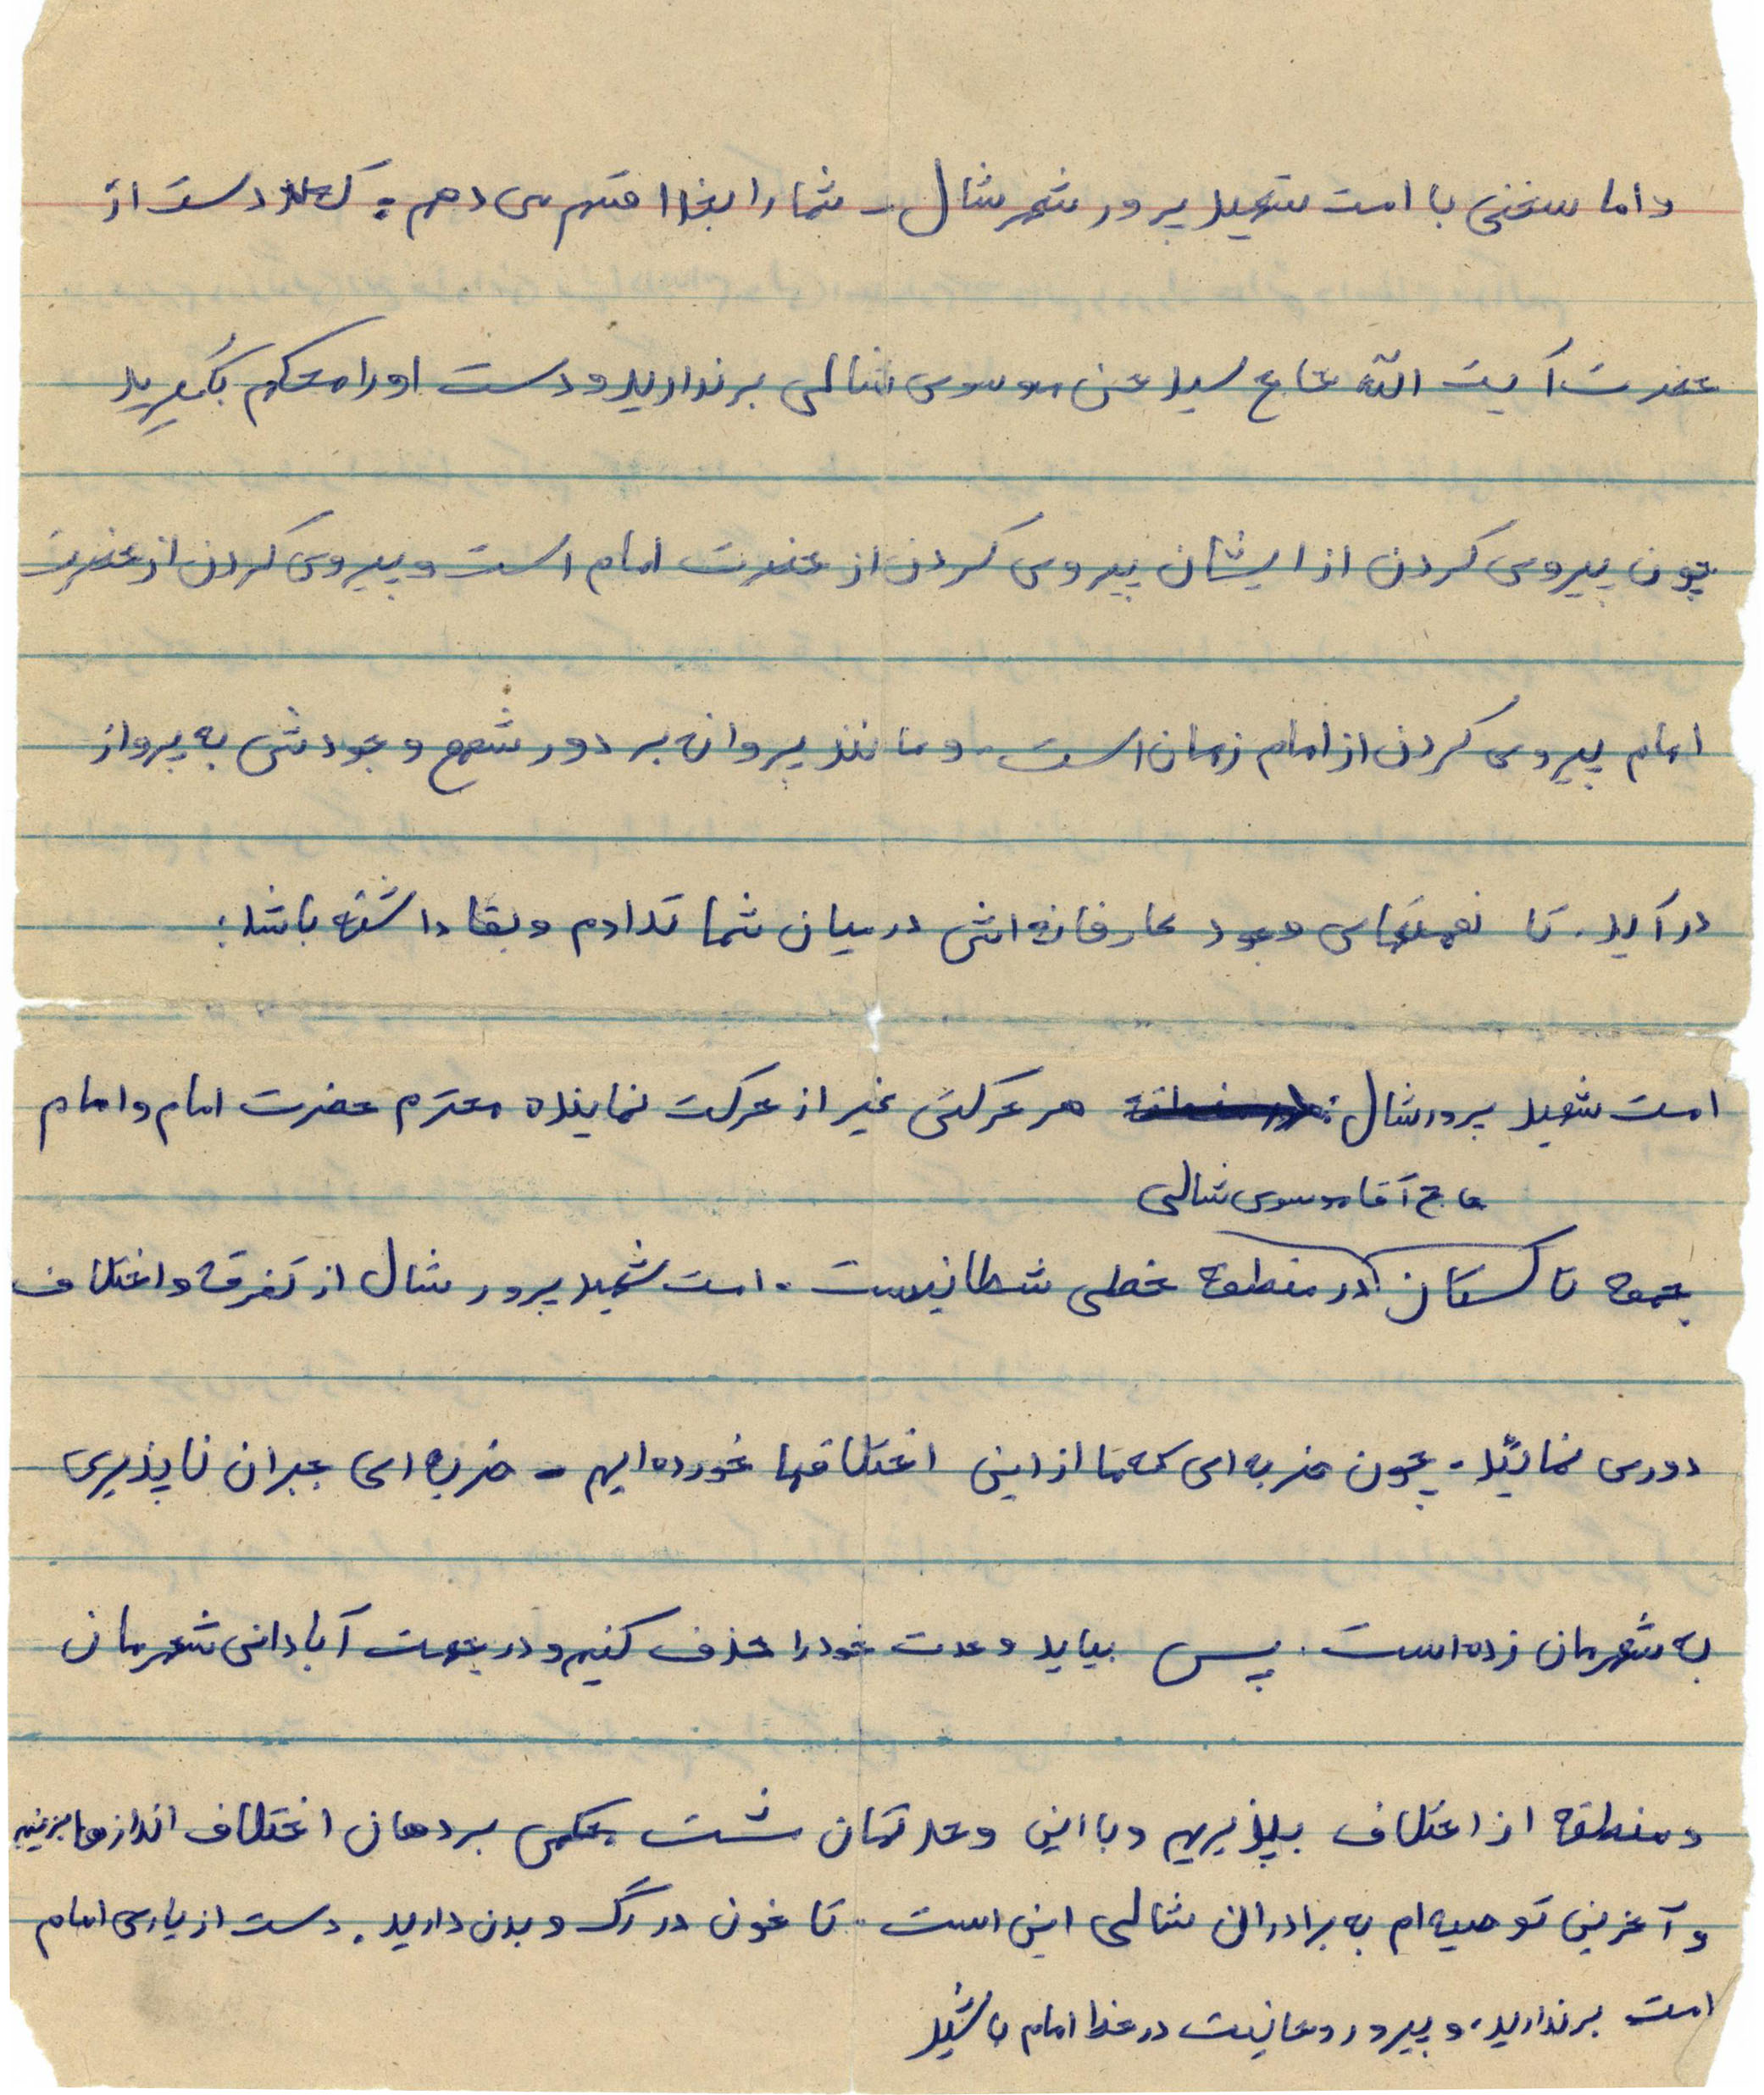 و اما سخنی با امت شهید پرور شهر شال - شما را بخدا قسم می دهم . که دست از
حضرت آیت الله حاج سید حسن موسوی شالی برندارید و دست او را محکم بگیرید
چون پیروی کردن از ایشان پیروی کردن از حضرت امام است و پیروی کردن از حضرت
امام پیروی کردن از امام زمان است . و مانند پروانه بر دور شمع وجودش به پرواز
در آید . تا نعمتهای وجود عارفانه اش در میان شما تداوم و بقا داشته باشد :
امت شهید پرور شال : هر حرکتی غیر از حرکت نماینده محترم حضرت امام و امام
حاج آقا موسوی شالی
جمعه تاکستان در منطقه خطی شطانیست . امت شهید پرور شال از تفرقه و اختلاف
دوری نمائید . چون ضربه ای که ما از این اختلافها خورده ایم - ضربه ای جبران ناپذیری
به شهرمان زده است . پس بیاید وحدت خود را حذف کنیم و در جهت آبادانی شهرمان
و منطقه از اختلاف بپذیریم و با این وحدتمان مشت محکمی بر دهان اختلاف اندازها بزنیم
و آخرین توصیه ام به برادران شالی این است . تا خون در رگ و بدن دارید . دست از یاری امام
امت برندارید . و پیرو روحانیت در خط امام باشید